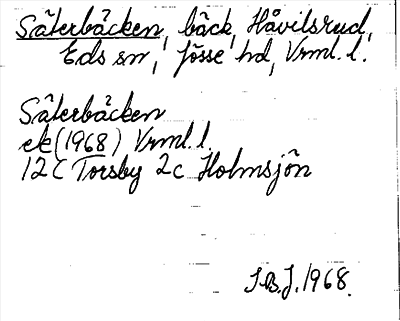 Säterbäcken, bäck, Håvilsrud,
Eds sn, Jösse hd, Vrml. l.
Säterbäcken
ek (1968) Vrml. l.
12 C Torsby 2c Holmsjön
1968.